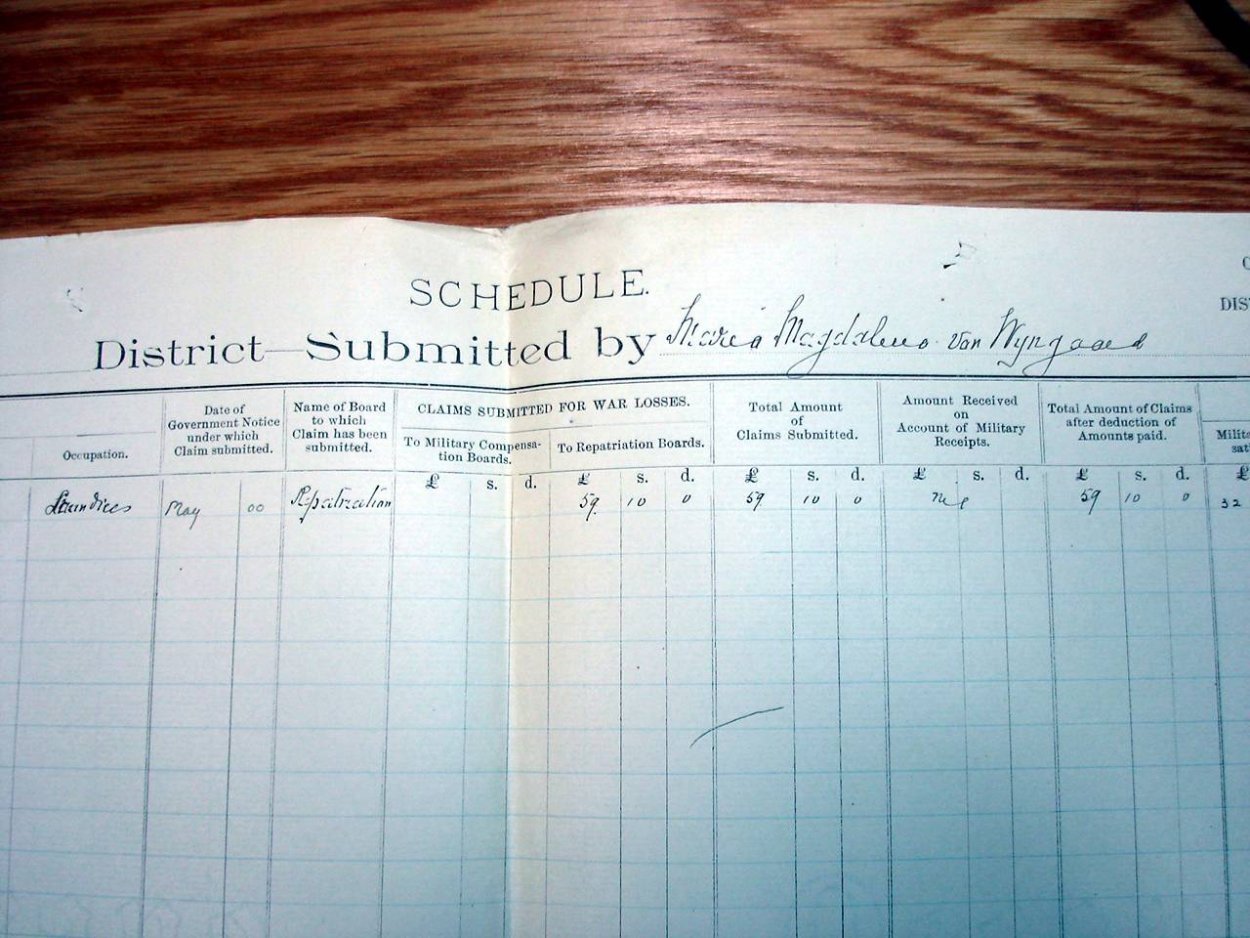 SCHEDULE.
District Submitted by Maria Magdalena van Wyngaard
DIS
Occupation.
Date of
Government Notice
under which
Claim submitted.
Name of Board
to which
Claim has been
submitted.
CLAIMS SUBMITTED FOR WAR LOSSES.
To Military Compensa-
tion Boards.
To Repatriation Boards.
Total Amount
of
Claims Submitted.
Amount Received
on
Account of Military
Receipts.
Total Amount of Claims
after deduction of
Amounts paid.
Milita
sati
£ s. d. £ s. d. £ s. d. £ s. d. £ s. d. £
May 00 Repatriation 59 10 0 59 10 0 Nil 59 10 0 32